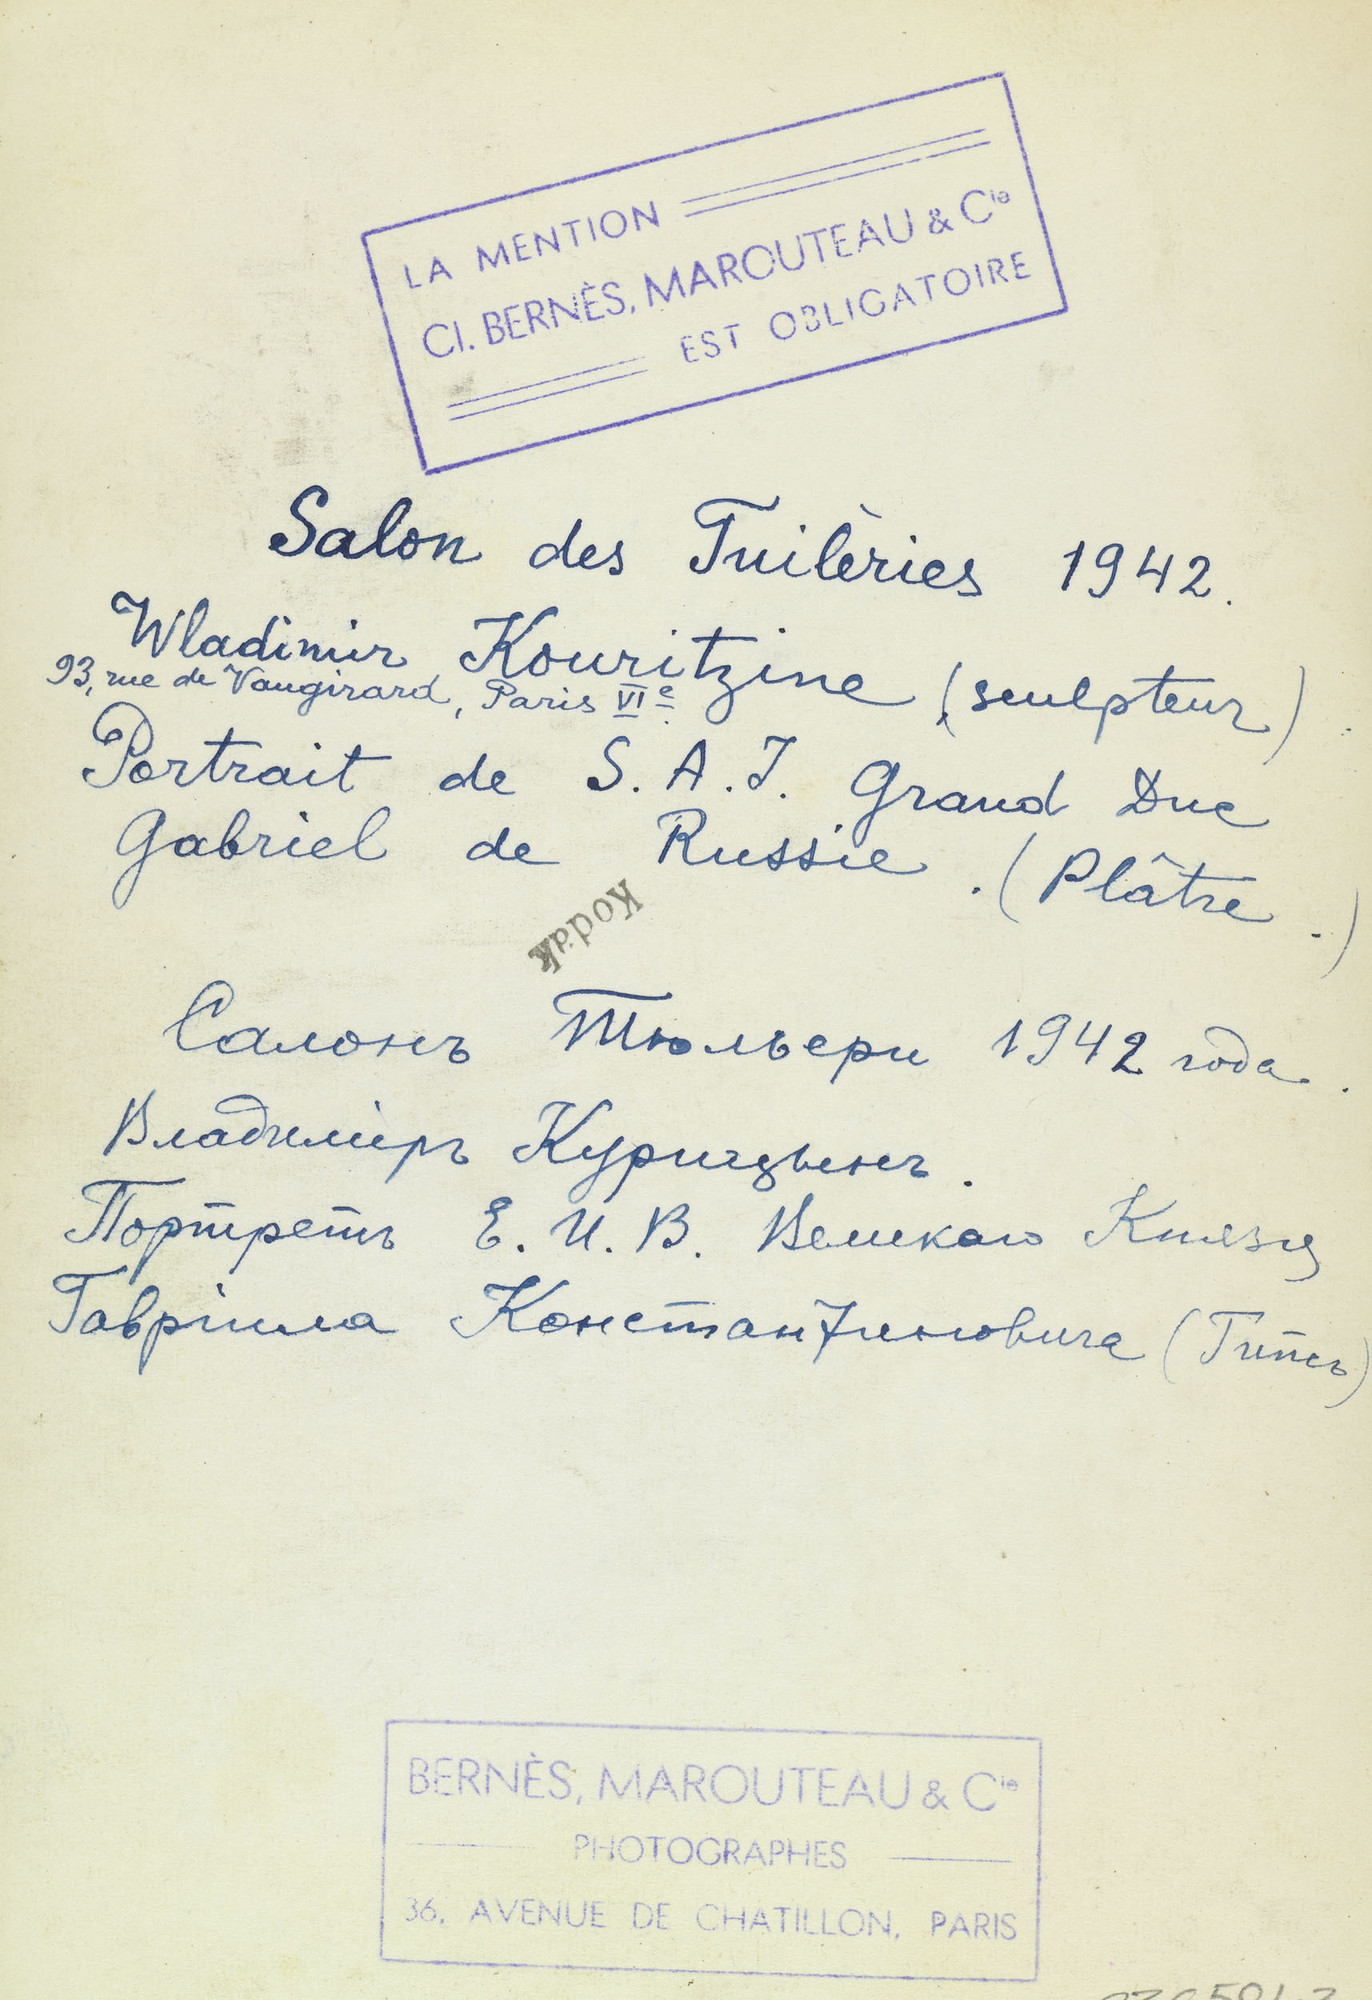 LA MENTION
Cl. BERNÈS, MAROUTEAU & Cie
EST OBLIGATOIRE
Salon des Tuilèries 1942.
Wladimir Kouritzine (sculpteur)
93, rue de Vaugirard, Paris VIe
Portrait de S. A. I. Grand Duc
Gabriel de Russie. (Plâtre.)
Kodak
Салонъ Тюльери 1942 года.
Владимiръ Курицынъ.
Портретъ Е. И. В. Великаго Князя
Гаврiила Константиновича (Гипсъ)
BERNÈS, MAROUTEAU & Cie
PHOTOGRAPHES
36, AVENUE DE CHATILLON, PARIS